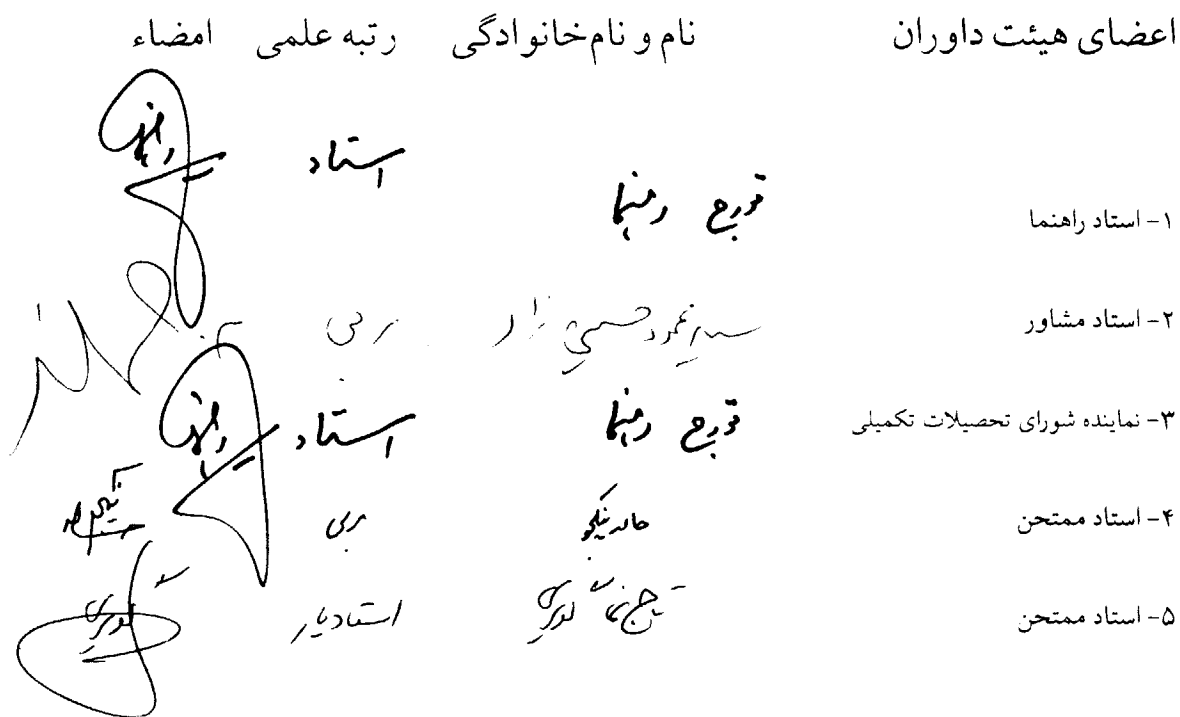 اعضای هیئت داوران نام و نام‌خانوادگی رتبه علمی امضاء
۱- استاد راهنما تورج رهنما استاد
۲- استاد مشاور سید محمود حسینی زاد مربی
۳- نماینده شورای تحصیلات تکمیلی تورج رهنما استاد
۴- استاد ممتحن مربی
۵- استاد ممتحن استادیار